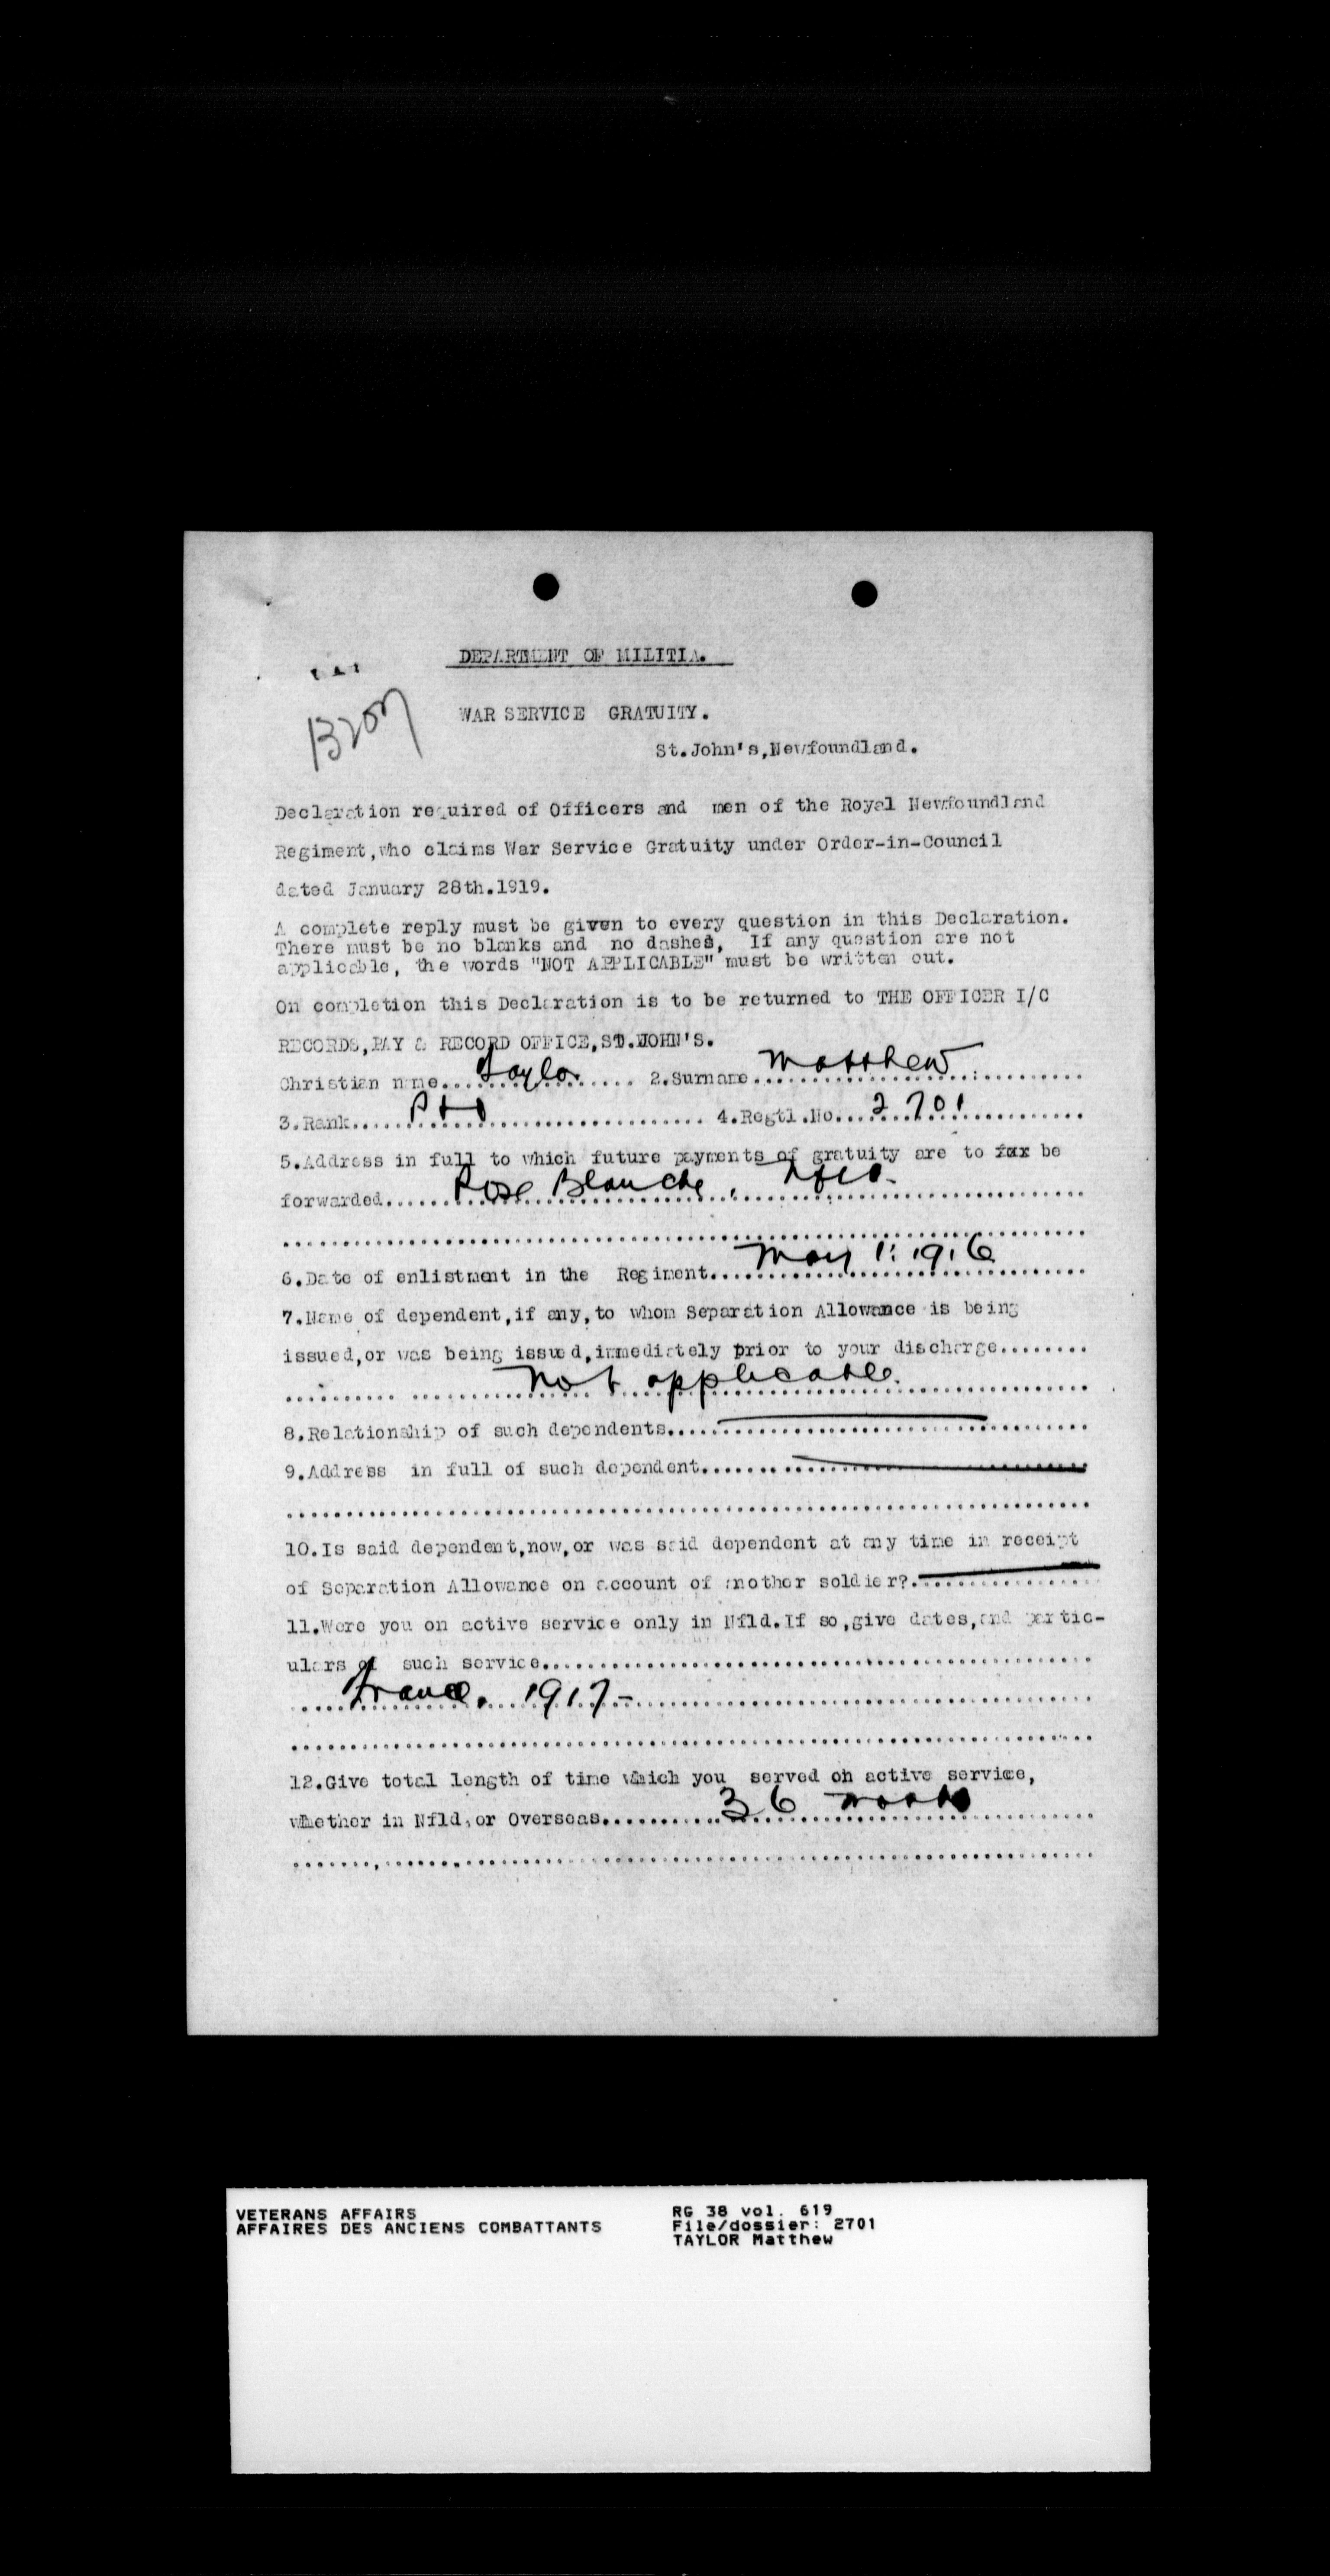 DEPARTMENT OF MILITIA.
WAR SERVICE GRATUITY.
St.John's,Newfoundland.
Declaration required of Officers and men of the Royal Newfoundland
Regiment,who claims War Service Gratuity under Order-in-Council
dated January 28th.1919.
A complete reply must be given to every question in this Declaration.
There must be no blanks and no dashes, If any question are not
applicable, the words "NOT APPLICABLE" must be written out.
On completion this Declaration is to be returned to THE OFFICER I/C
RECORDS,PAY & RECORD OFFICE,ST.JOHN'S.
Christian name....Taylor.... 2.Surname....Matthew....
3.Rank....Pte.... 4.Regtl.No....2701....
5.Address in full to which future payments of gratuity are to be
forwarded....Rose Blanche, Nfld....
6.Date of enlistment in the Regiment....May 1: 1916....
7.Name of dependent,if any,to whom Separation Allowance is being
issued,or was being issued,immediately prior to your discharge........
Not applicable.
8.Relationship of such dependents....
9.Address in full of such dependent....
10.Is said dependent,now,or was said dependent at any time in receipt
of Separation Allowance on account of another soldier?....
11.Were you on active service only in Nfld.If so,give dates,and partic-
ulars of such service....
France, 1917-
12.Give total length of time which you served on active service,
whether in Nfld,or Overseas....36
VETERANS AFFAIRS RG 38 vol. 619
AFFAIRES DES ANCIENS COMBATTANTS File/dossier: 2701
TAYLOR Matthew